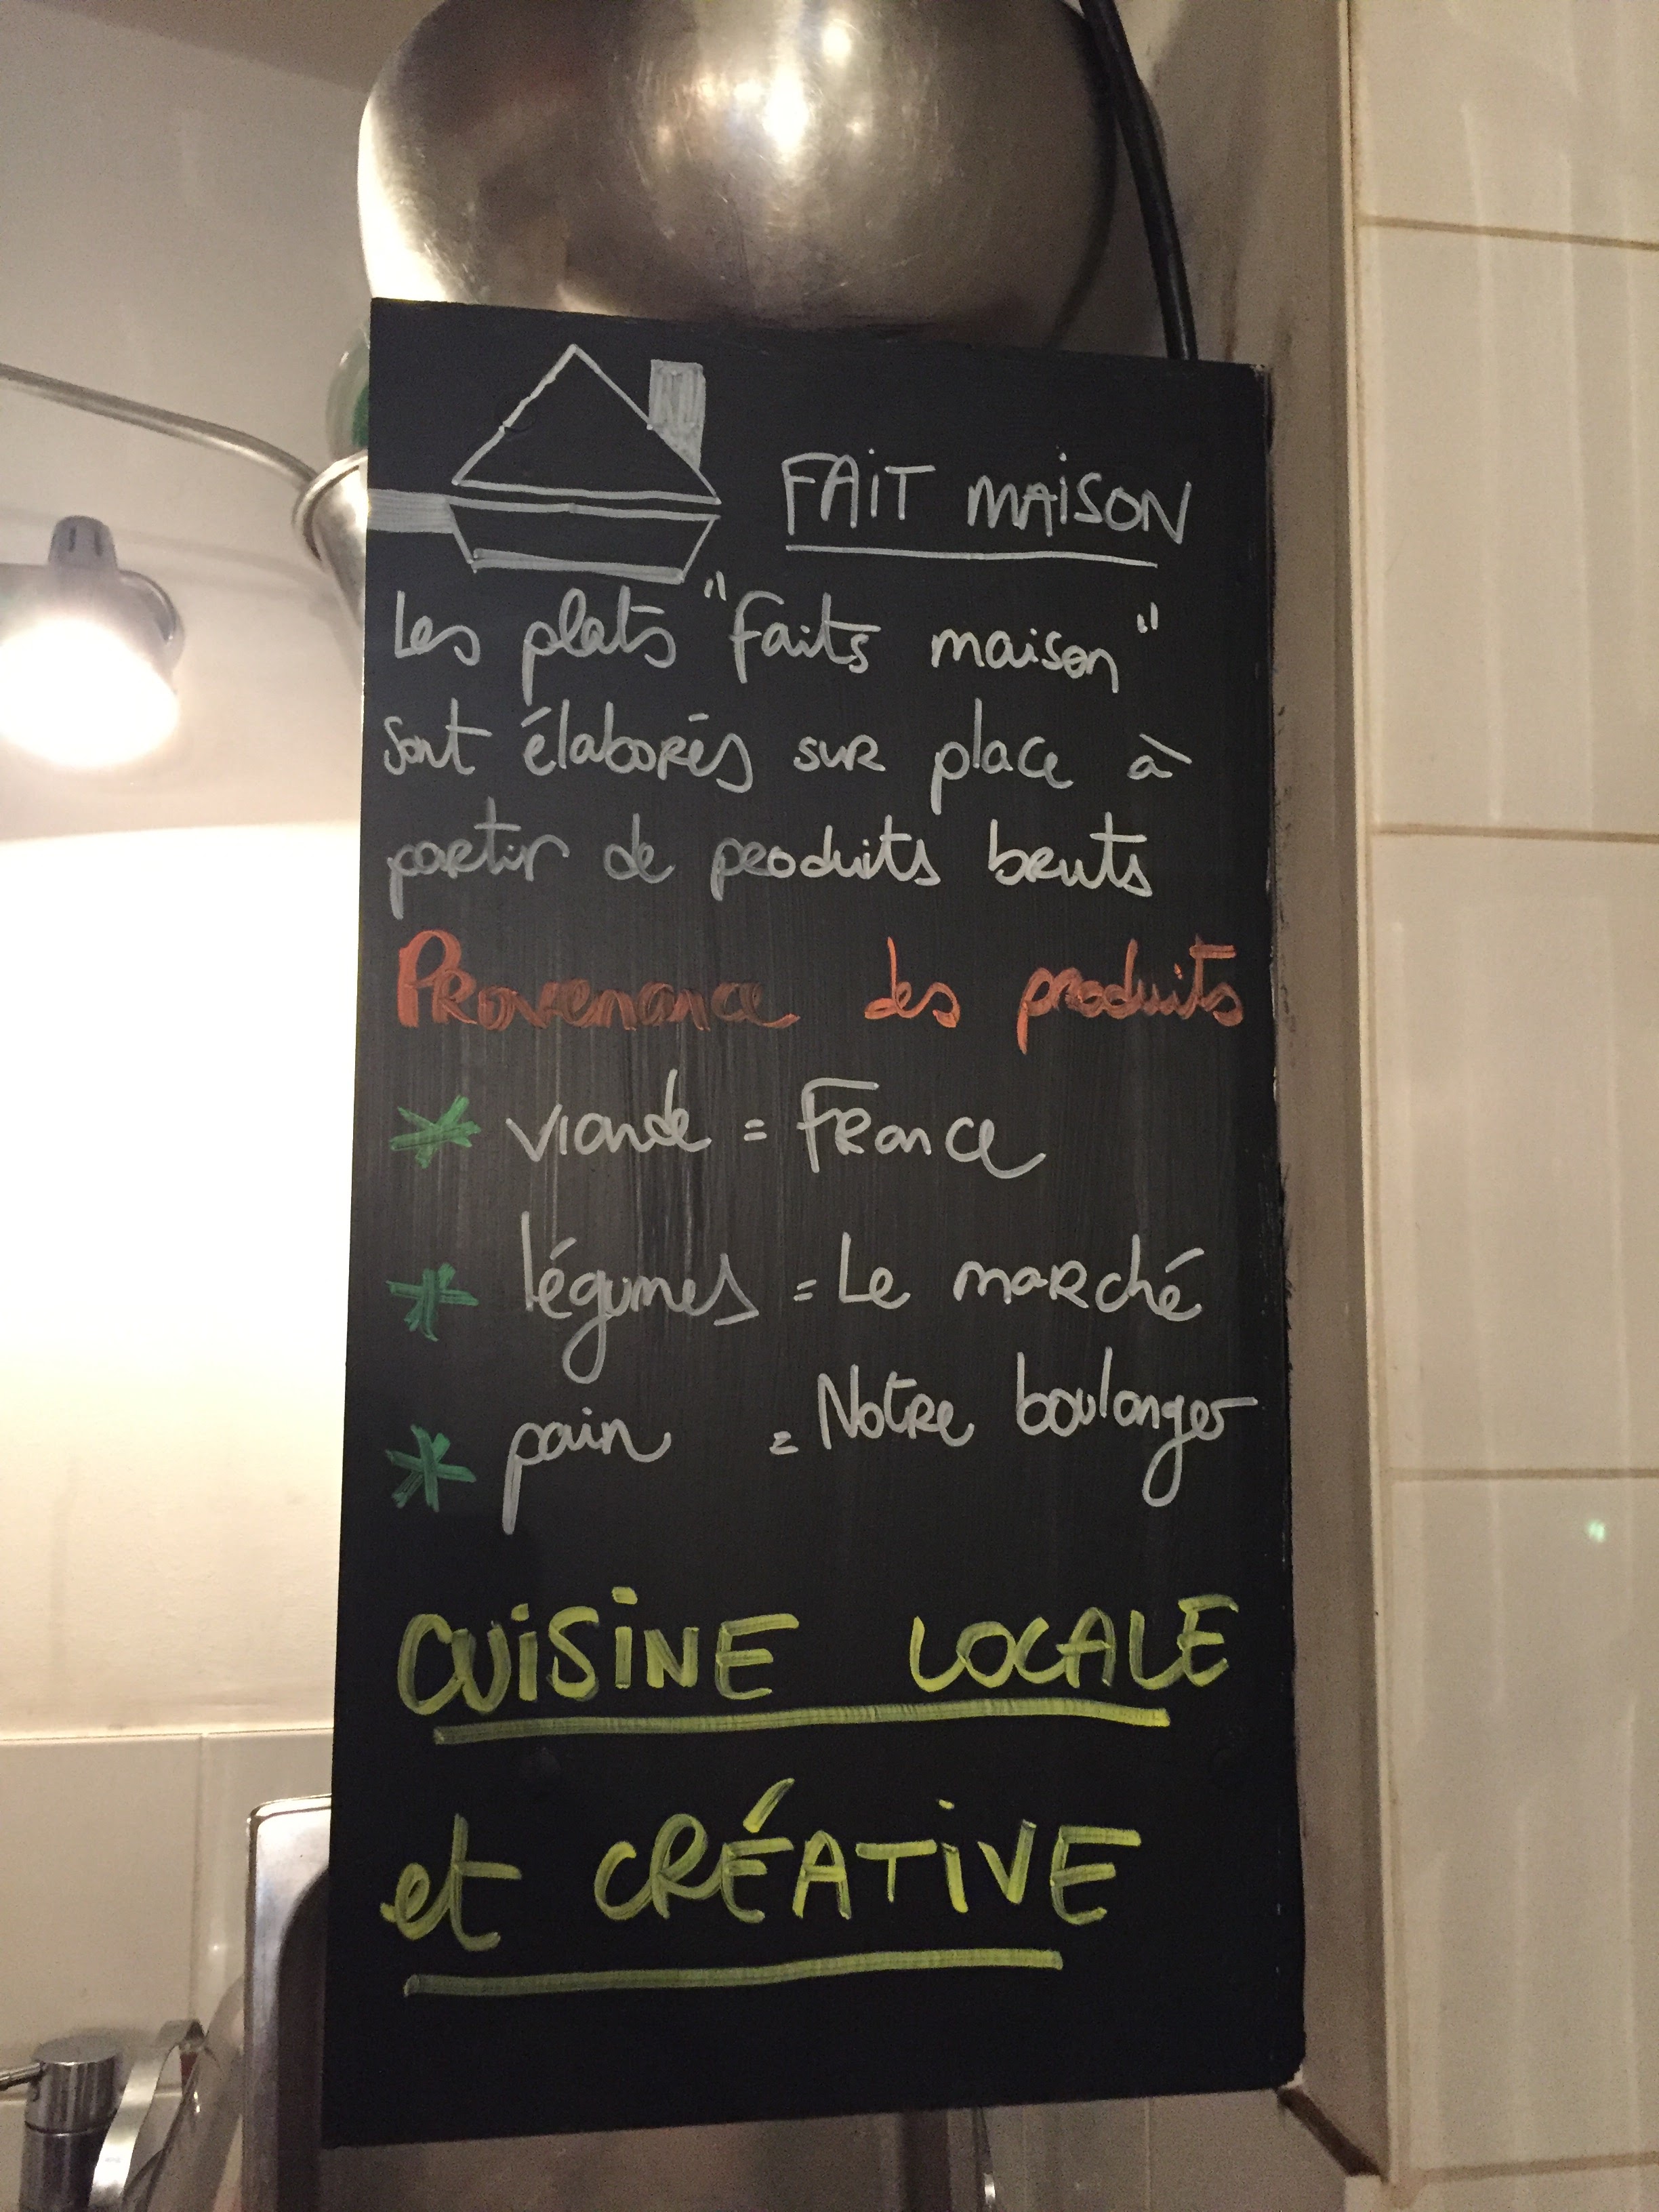 FAiT MAiSON
Les plats "faits maison"
sont élaborés sur place à
partir de produits bruts
Provenance des produits
* viande = France
* légumes = Le marché
* pain = Notre boulanger
CUiSiNE LOCALE
et CRÉATiVE